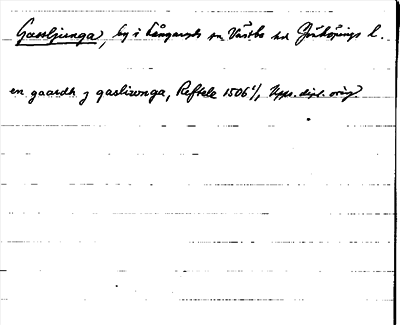 Gassljunga, by i Långaryds sn Västbo hd Jönköpings l.
en gaardh j gasliwnga, Reftele 1506 1/1, Upps. dipl. orig.